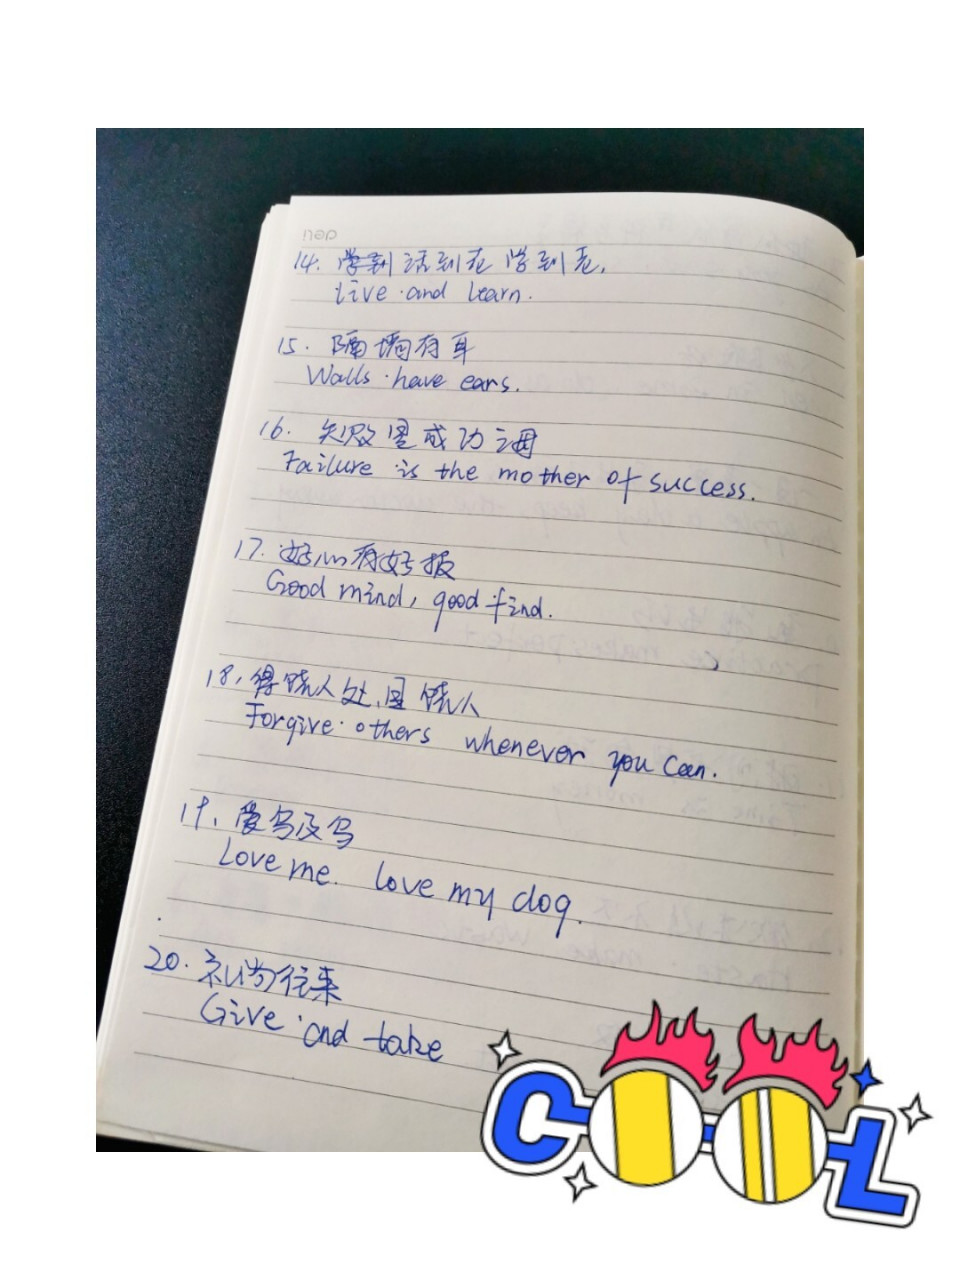 14. 学到 活到老 学到老.
Live and learn.
15. 隔墙有耳
Walls have ears.
16. 失败是成功之母
Failure is the mother of success.
17. 好心有好报
Good mind, good find.
18. 得饶人处且饶人
Forgive others whenever you can.
19. 爱乌及乌
Love me. Love my dog.
20. 礼尚往来
Give and take
COOL